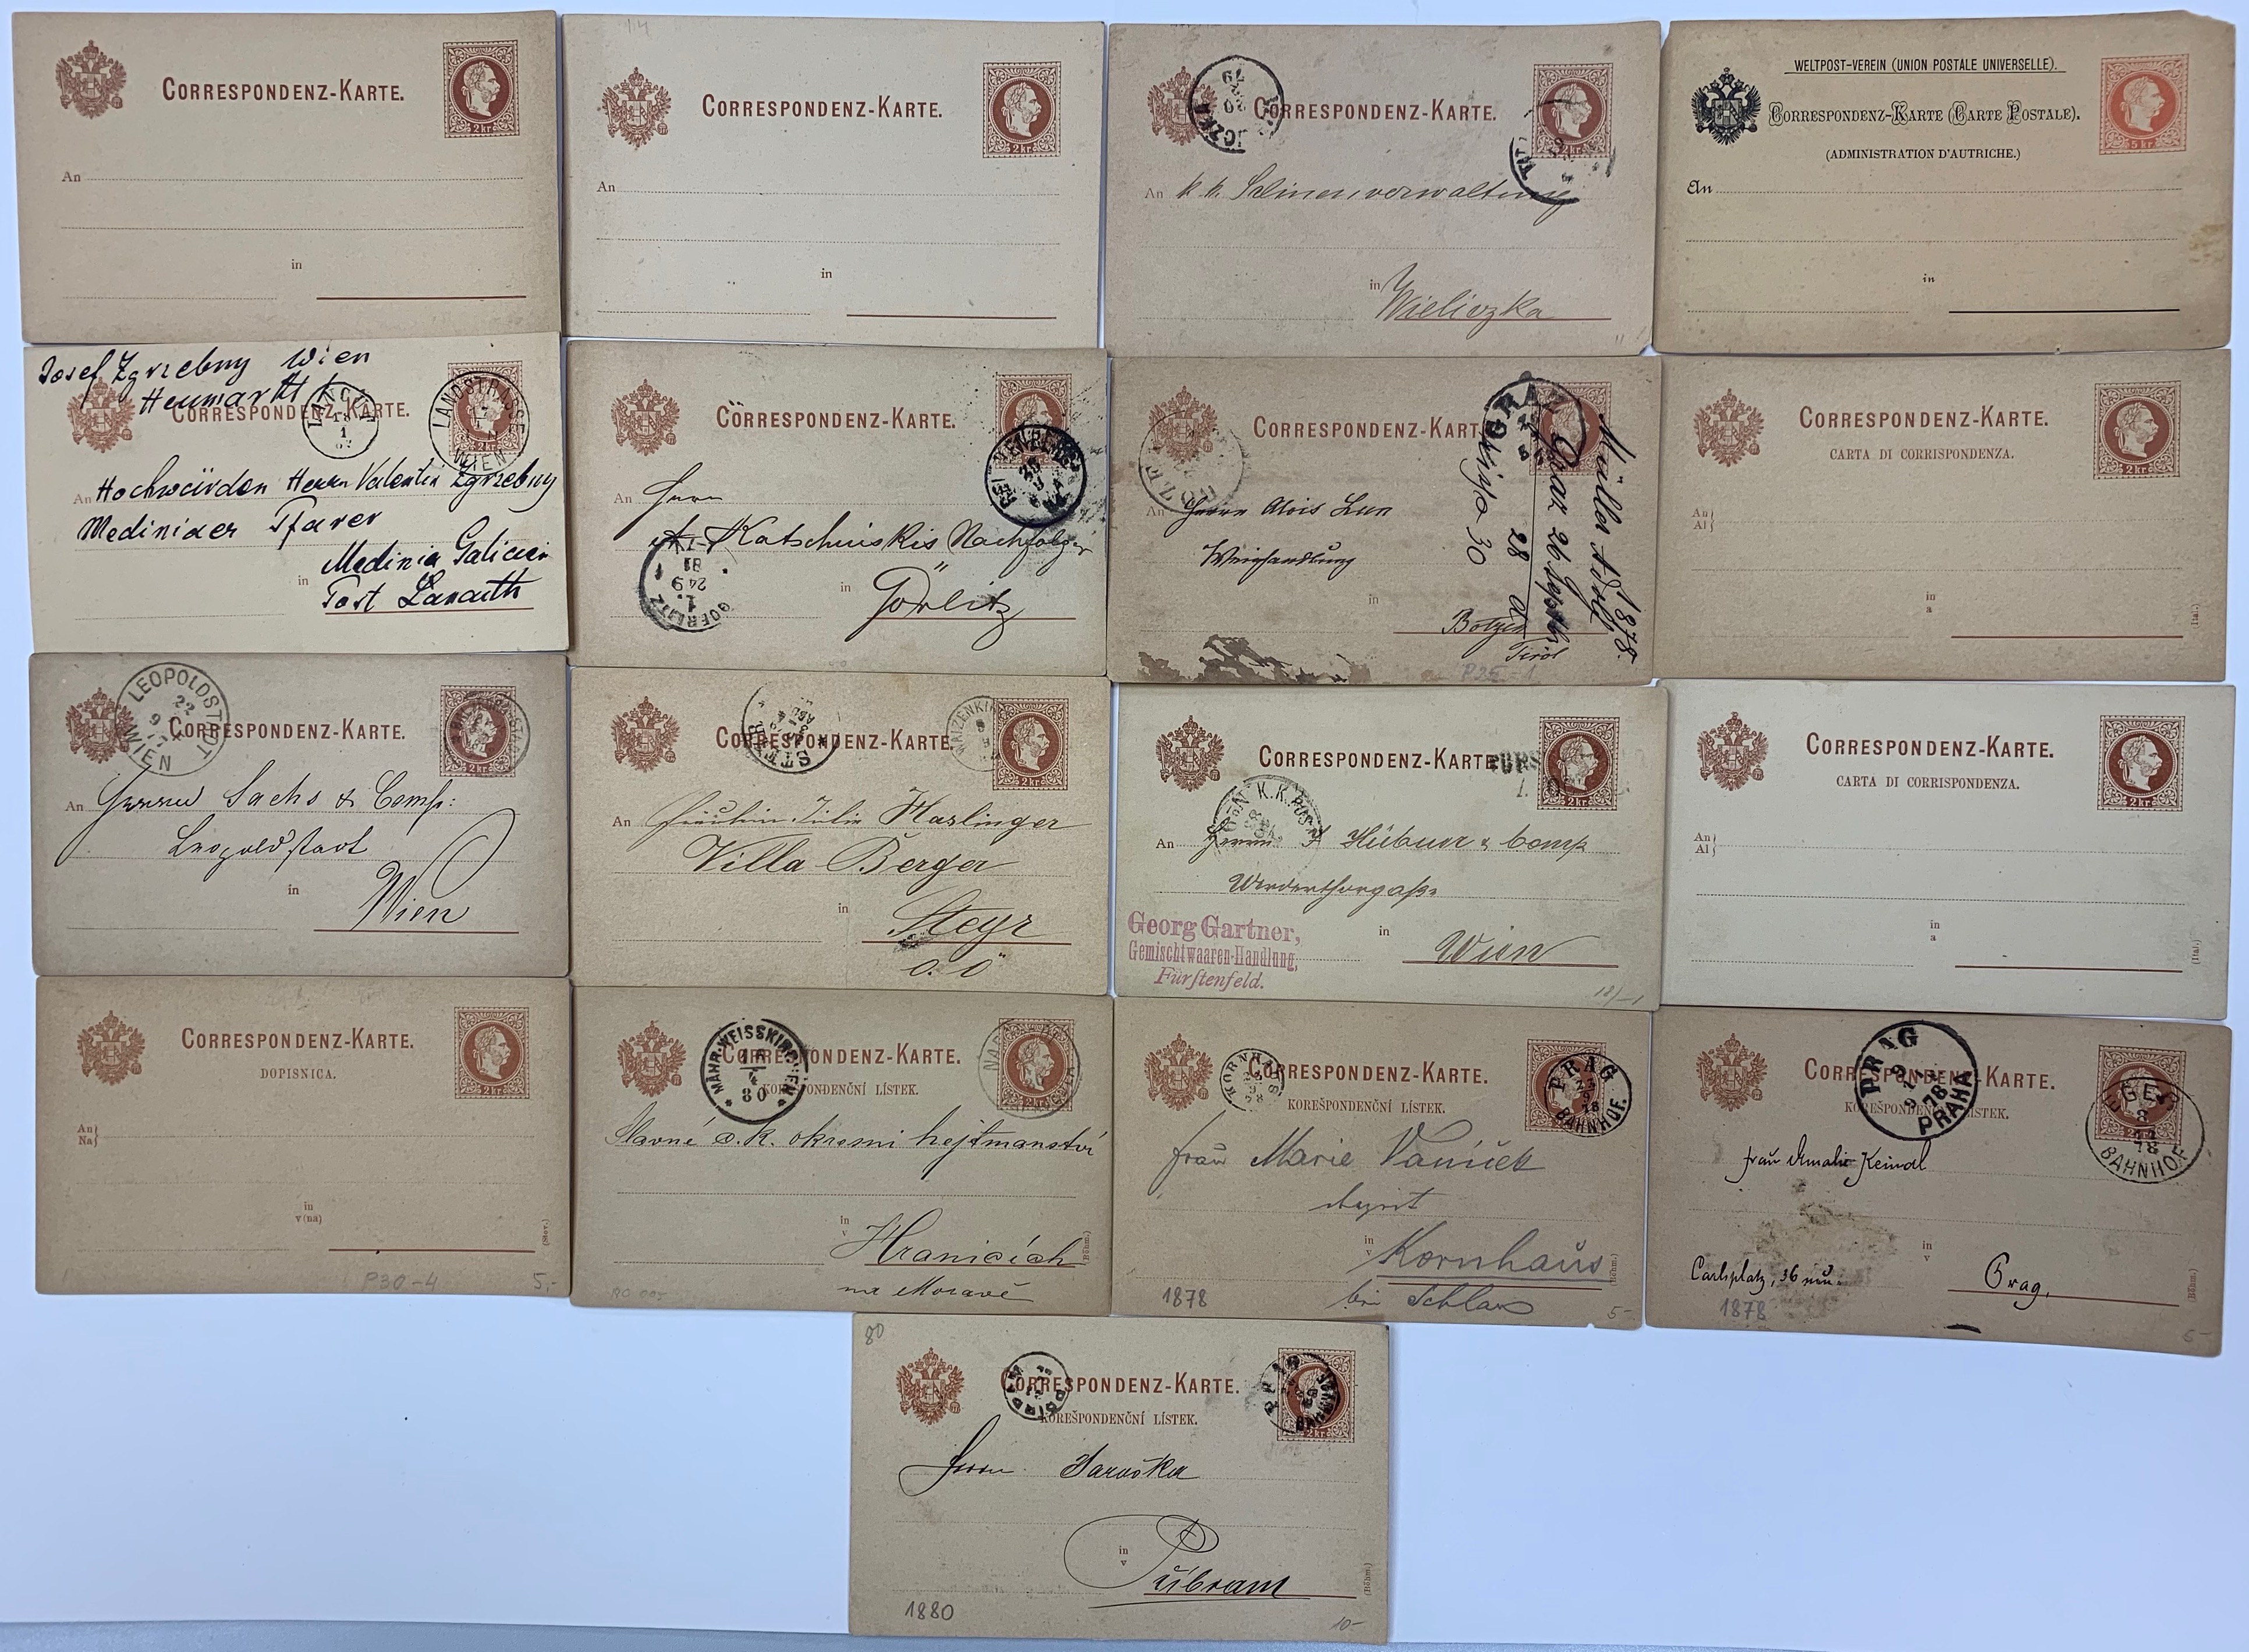 CORRESPONDENZ-KARTE.
2 kr.
An
in
14
CORRESPONDENZ-KARTE.
2 kr.
An
in
CORRESPONDENZ-KARTE.
2 kr.
20
79
An k. k. Salinenverwaltung
in Wieliczka
WELTPOST-VEREIN (UNION POSTALE UNIVERSELLE).
CORRESPONDENZ-KARTE (CARTE POSTALE).
5 kr.
(ADMINISTRATION D'AUTRICHE.)
An
in
Josef Zgrzebny Wien
Heumarkt
CORRESPONDENZ-KARTE.
LANDSTRASSE
WIEN
2 kr.
An Hochwürden Herrn Valentin Zgrzebny
Mediniaer Pfarer
Medinia Galicien
in Post Lancuth
CORRESPONDENZ-KARTE.
An Herrn
A. Katschinskis Nachfolger
GOERLITZ
24 9
81
in Görlitz
CORRESPONDENZ-KARTE.
GRAZ
An Herrn Alois Lun
Weinhandlung
in Botzen
Tirol
Müller Adolf
Graz 26 Septb 1878.
28
30
P25
CORRESPONDENZ-KARTE.
CARTA DI CORRISPONDENZA.
2 kr.
An
Al
in
a
(Ital.)
LEOPOLDSTADT
WIEN
22
9
77
CORRESPONDENZ-KARTE.
2 kr.
An Herren Sachs & Comp:
Leopoldstadt
in Wien
CORRESPONDENZ-KARTE.
2 kr.
An Fräulein Julie Haslinger
Villa Berger
in Steyr
O. Ö
CORRESPONDENZ-KARTE.
2 kr.
K.K. POST
An Herrn F Hübner & Comp
Werderthorgaße
in Wien
Georg Gartner,
Gemischtwaaren-Handlung,
Fürstenfeld.
CORRESPONDENZ-KARTE.
CARTA DI CORRISPONDENZA.
2 kr.
An
Al
in
a
(Ital.)
CORRESPONDENZ-KARTE.
DOPISNICA.
2 kr.
An
Na
in
v (na)
(Slov.)
P30-4
5,-
CORRESPONDENZ-KARTE.
KOREŠPONDENČNÍ LÍSTEK.
MÄHR. WEISSKIRCHEN
80
2 kr.
Slavné c. k. okresní hejtmanství
in
v Hranicích
na Moravě
(Böhm.)
CORRESPONDENZ-KARTE.
KOREŠPONDENČNÍ LÍSTEK.
KORNHAUS
PRAG
BAHNHOF.
Frau Marie Vaníček
in
v Kornhaus
bei Schlan
(Böhm.)
1878
5-
CORRESPONDENZ-KARTE.
KOREŠPONDENČNÍ LÍSTEK.
PRAG
PRAHA
9
78
EGER
8
78
BAHNHOF
Frau Amalie Keindl
in
v
Carlsplatz, 36 neu.
Prag.
(Böhm.)
1878
80
CORRESPONDENZ-KARTE.
KOREŠPONDENČNÍ LÍSTEK.
PRAG
2 kr.
Herrn Jaroška
in
v
Přibram
(Böhm.)
1880
10-